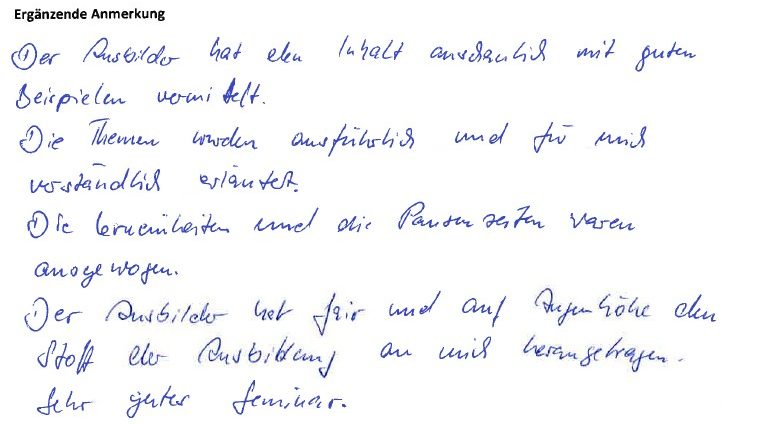 Ergänzende Anmerkung
① Der Ausbilder hat den Inhalt anschaulich mit guten
Beispielen vermittelt.
① Die Themen wurden ausführlich und für mich
verständlich erläutert.
① Die Lerneinheiten und die Pausenzeiten waren
ausgewogen.
① Der Ausbilder hat fair und auf Augenhöhe den
Stoff der Ausbildung an mich herangetragen.
Sehr gutes Seminar.